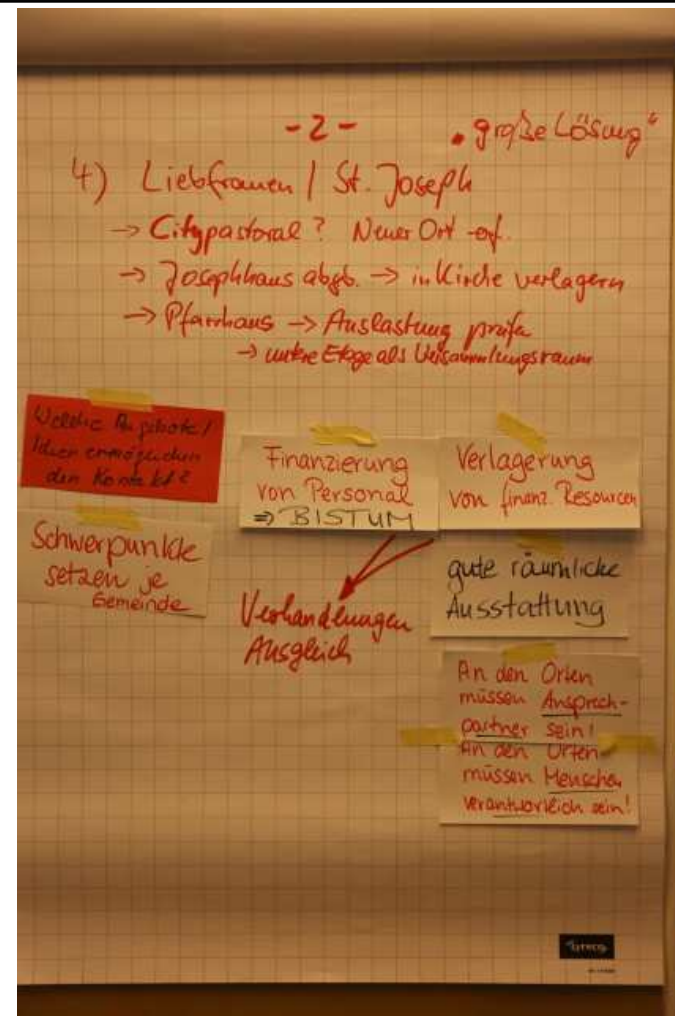 - 2 -
• große Lösung"
4) Liebfrauen / St. Joseph
→ Citypastoral? Neuer Ort erf.
→ Josephhaus abgb. → in Kirche verlagern
→ Pfarrhaus → Auslastung prüfen
→ untere Etage als Versammlungsraum
Welche Angebote /
Ideen ermöglichen
den Kontakt?
Schwerpunkte
setzen je
Gemeinde
Finanzierung
von Personal
⇒ BISTUM
Verlagerung
von finanz. Resourcen
Verhandlungen
Ausgleich
gute räumliche
Ausstattung
An den Orten
müssen Ansprech-
partner sein!
An den Orten
müssen Menschen
verantworlich sein!